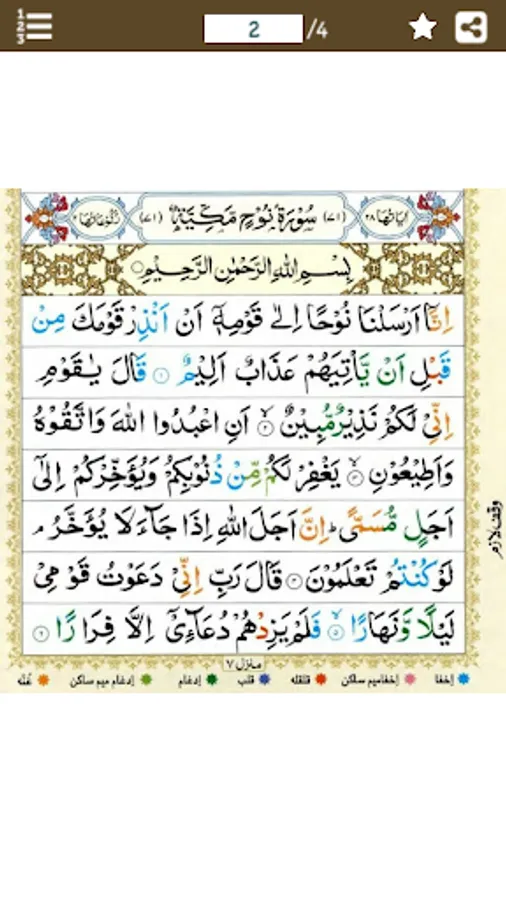 2 /4
اٰیاتها ۲۸ (۷۱) سُوْرَةُ نُوْحٍ مَكِّیَّةٌ (۷۱) رُكُوْعَاتُهَا ۲
بِسْمِ اللهِ الرَّحْمٰنِ الرَّحِیْمِ
اِنَّاۤ اَرْسَلْنَا نُوْحًا اِلٰى قَوْمِهٖۤ اَنْ اَنْذِرْ قَوْمَكَ مِنْ
قَبْلِ اَنْ یَّاْتِیَهُمْ عَذَابٌ اَلِیْمٌ ۱ قَالَ یٰقَوْمِ
اِنِّیْ لَكُمْ نَذِیْرٌ مُّبِیْنٌ ۲ اَنِ اعْبُدُوا اللهَ وَاتَّقُوْهُ
وَاَطِیْعُوْنِ ۳ یَغْفِرْ لَكُمْ مِّنْ ذُنُوْبِكُمْ وَیُؤَخِّرْكُمْ اِلٰۤى
اَجَلٍ مُّسَمًّى ؕ اِنَّ اَجَلَ اللهِ اِذَا جَآءَ لَا یُؤَخَّرُ ۘ
لَوْ كُنْتُمْ تَعْلَمُوْنَ ۴ قَالَ رَبِّ اِنِّیْ دَعَوْتُ قَوْمِیْ
لَیْلًا وَّنَهَارًا ۵ فَلَمْ یَزِدْهُمْ دُعَآءِیْۤ اِلَّا فِرَارًا ۶
وقف لازم
منازل ۷
إخفا إخفامیم ساكن قلقله قلب إدغام إدغام میم ساكن غُنّه